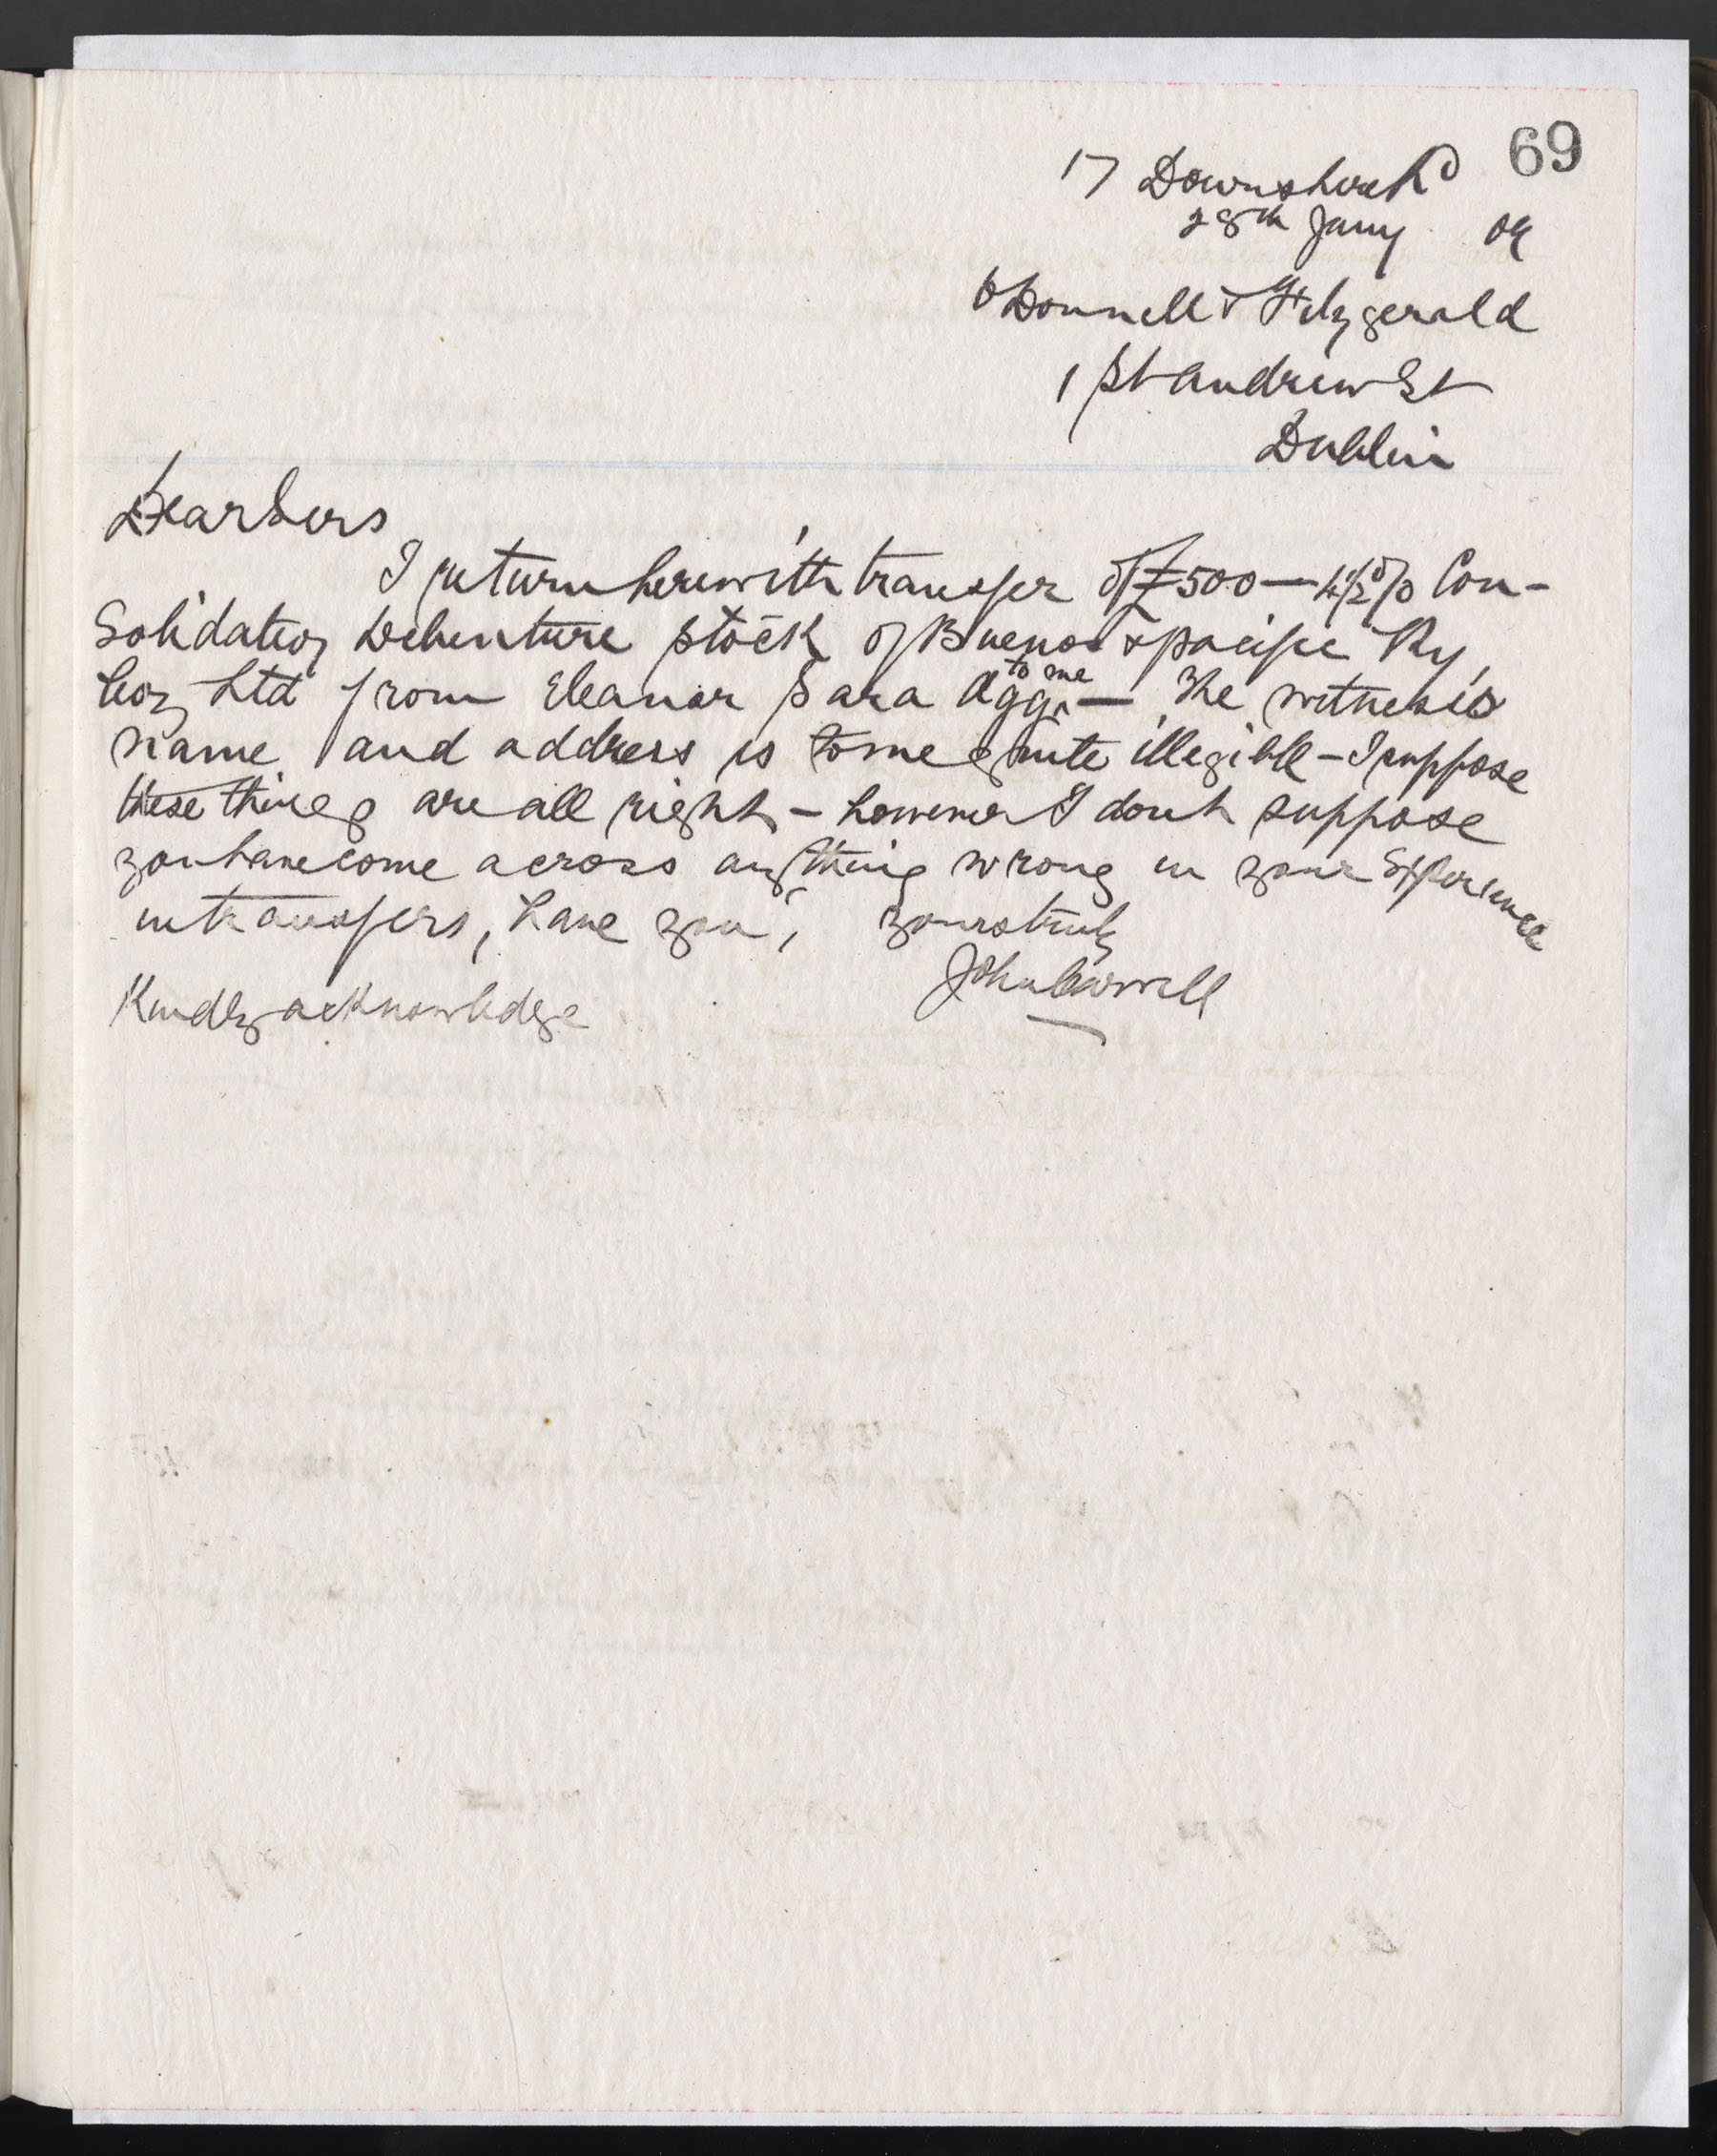 69
17 Downshire Rd
28th Jany 09
O Donnell & Fitzgerald
1 St Andrew St
Dublin
Dear Sirs
I return herewith transfer of £500 — 4½% Con-
solidation Debenture stock of Buenos & pacific Ry,
Coy Ltd from Eleanor Sara Agg to me — The witness's
name and address is to me quite illegible – I suppose
these things are all right – however I dont suppose
you have come across anything wrong in your Experience
in transfers, have you, yours truly
John Carvill
Kindly acknowledge